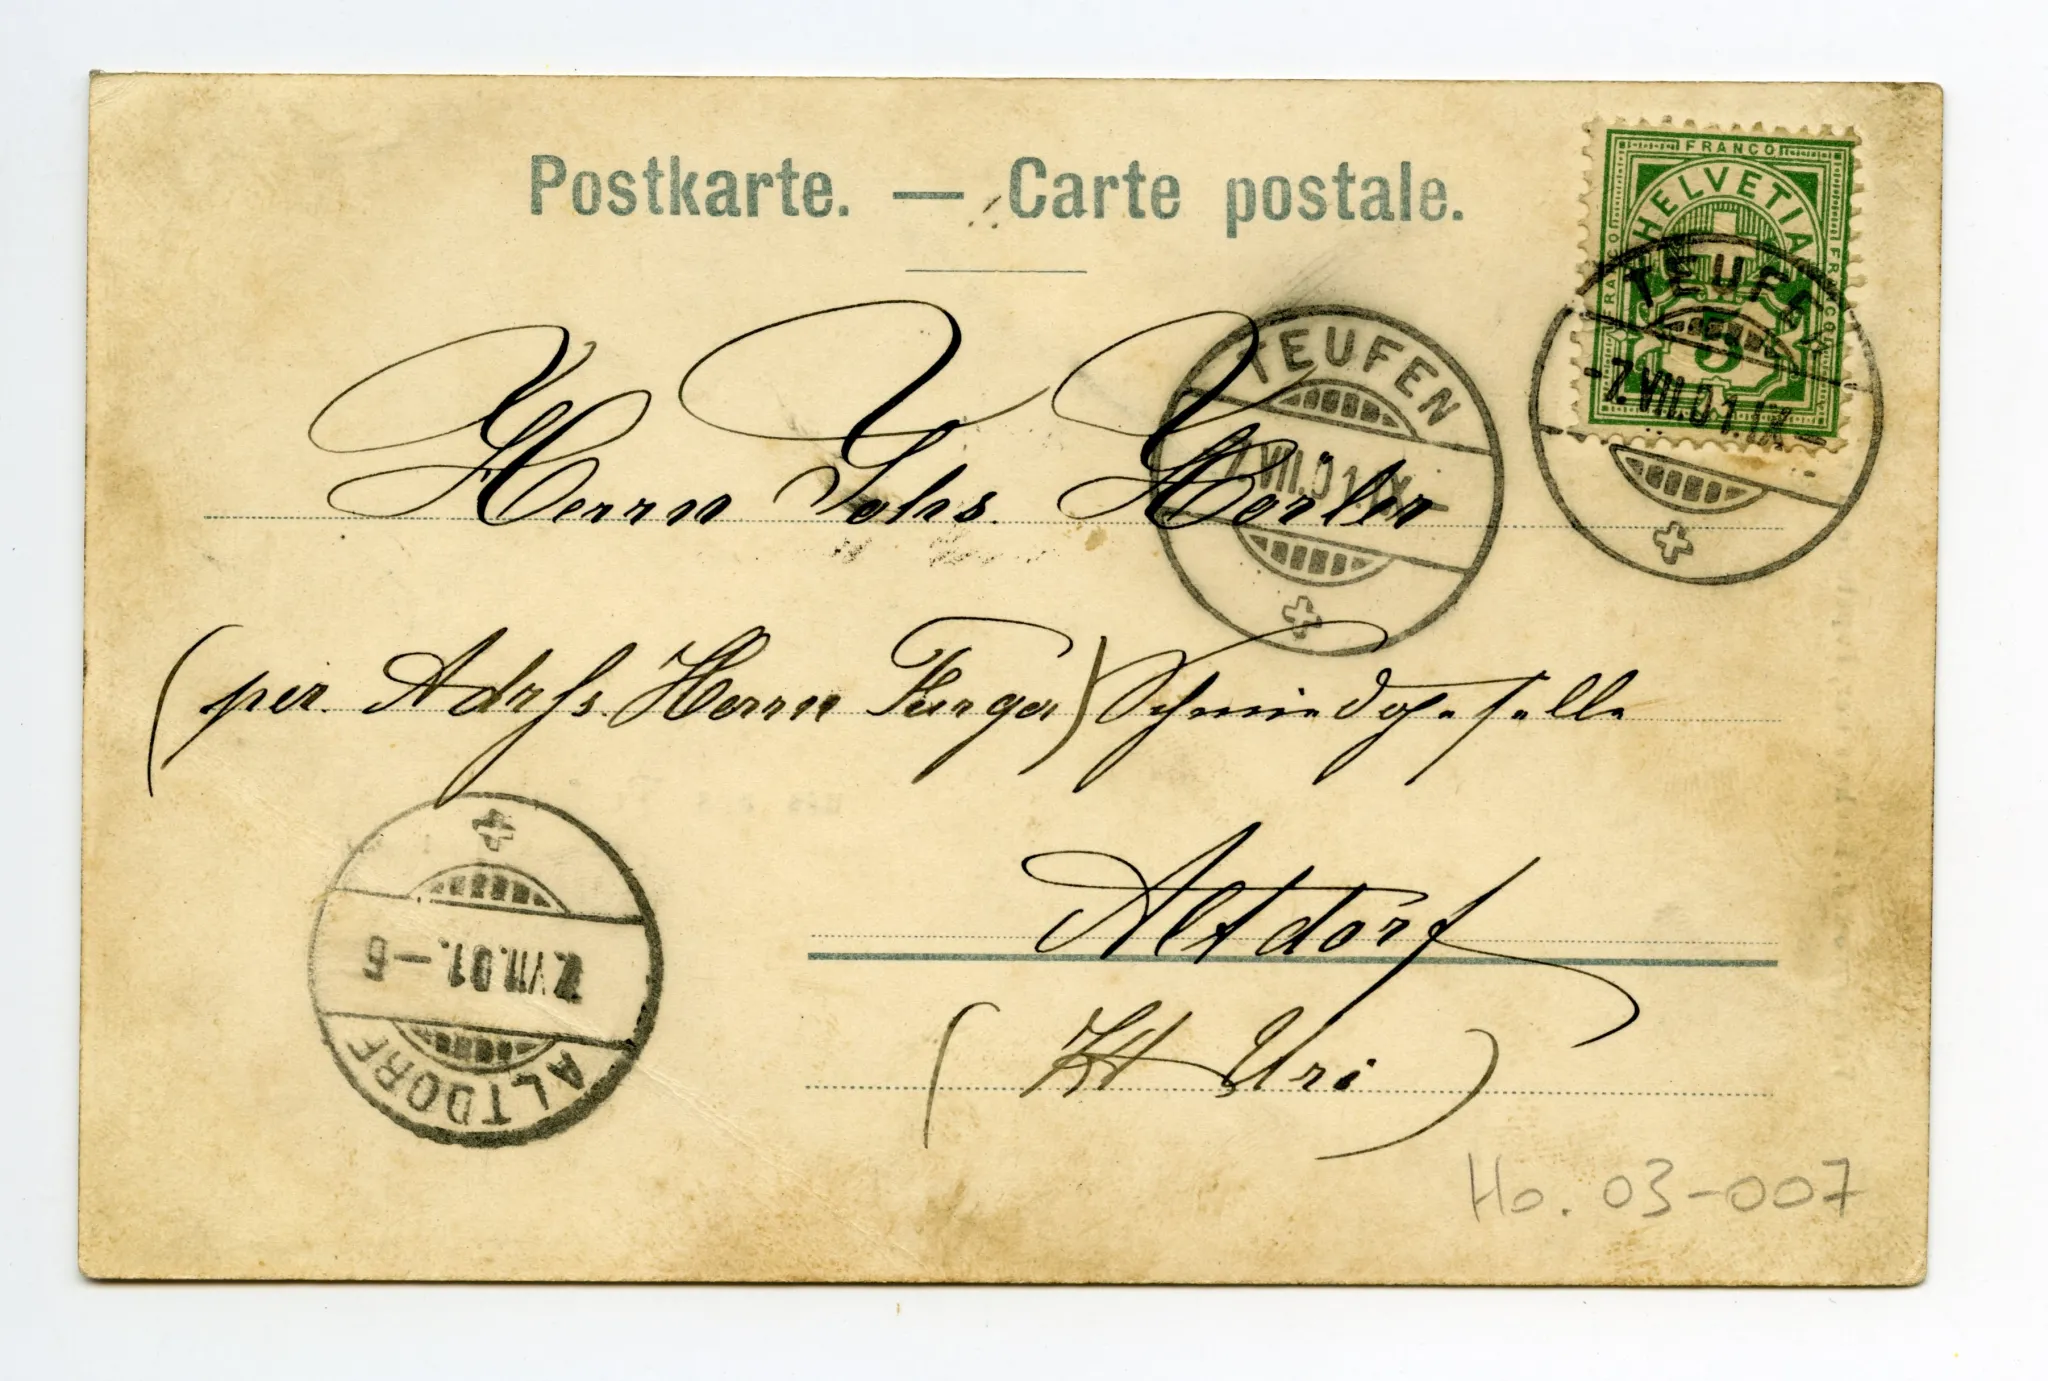 Postkarte. — Carte postale.
FRANCO
HELVETIA
FRANCO
FRANCO
5
TEUFEN
7.VII.01.IX-
TEUFEN
7.VII.01.IX-
Herrn Johs.
(per. Adrss. Herrn Furger) Schmiedgeselle
Altdorf
(Kt Uri)
ALTDORF
7.VII.01.-6
Ho. 03-007